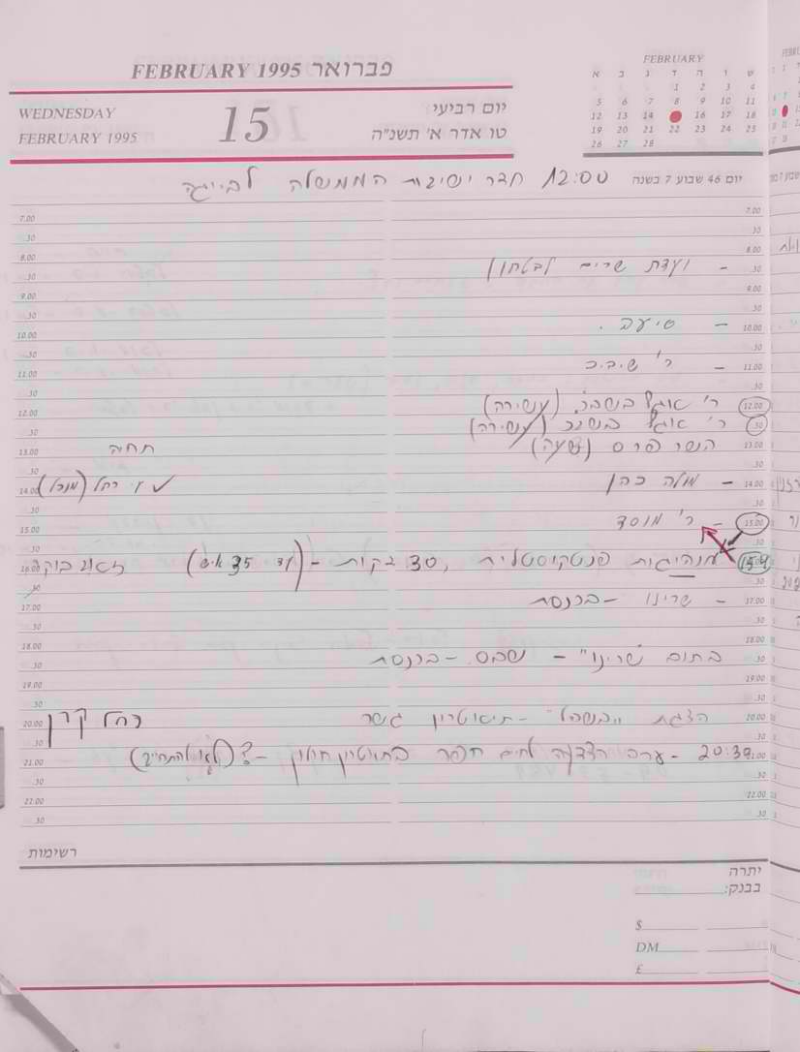 פברואר FEBRUARY 1995
WEDNESDAY
FEBRUARY 1995
15
יום רביעי
טו אדר א' תשנ"ה
FEBRUARY
א ב ג ד ה ו ש
1 2 3 4
5 6 7 8 9 10 11
12 13 14 16 17 18
19 20 21 22 23 24 25
26 27 28
יום 46 שבוע 7 בשנה
12:00 חדר ישיבות הממשלה
7.00 7.00
.30 .30
8.00 8.00
.30 - ועדת שרים לבטחון .30
9.00 9.00
.30 .30
10.00 - סיעה. 10.00
.30 .30
11.00 - ר' שב"כ 11.00
.30 .30
12.00 ר' אג"ף בשבכ (עשירה) 12.00
.30 ר' אג"ף בשבכ (עשירה) .30
13.00 פרס (שעה) תחיה 13.00
.30 .30
14.00 - מולה כהן רחל 14.00
.30 .30
15.00 - ר' מוסד 15.00
.30 .30
15:45 מנהיגות פנטקוסטלית, 30 דקות - (עד 35 איש) 16.00
.30 .30
17.00 - שרינו - בכנסת 17.00
.30 .30
18.00 18.00
.30 בתום "שרינו" - בכנסת .30
19.00 19.00
.30 .30
20.00 הצגת - תיאטרון גשר רחל קרן 20.00
.30 .30
20:30 - ערב הצדעה לחיים חפר בתאטרון חולון - ? 21.00
.30 .30
22.00 21.00
.30 .30
רשימות
יתרה
בבנק:
$
DM
£